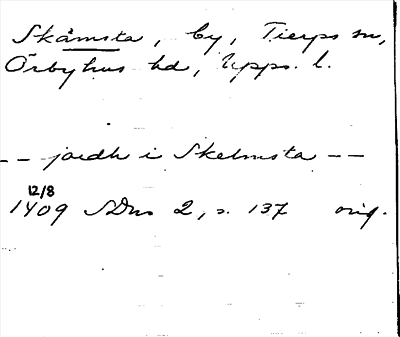 Skåmsta, by, Tierps sn,
Örbyhus hd, Upps. l.
-- jordh i Skelmsta --
12/8
1409 SDns 2, s. 137 orig.